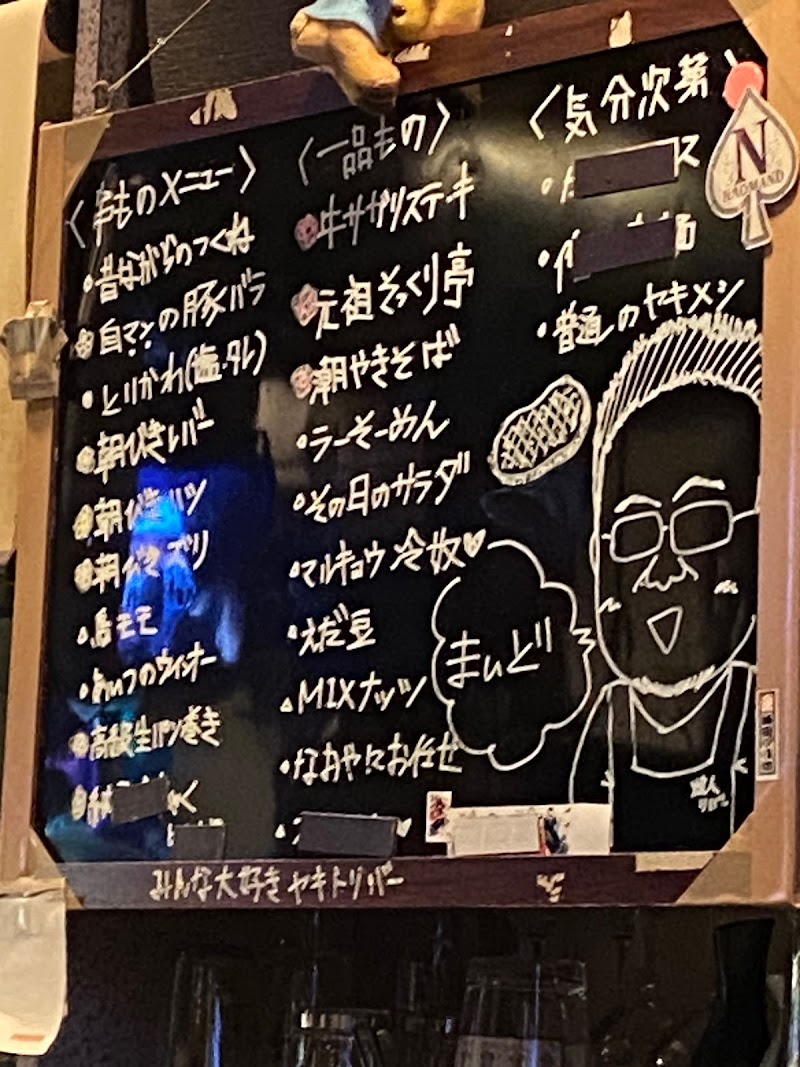 〈串ものメニュー〉
・昔ながらのつくね
自マンの豚バラ
・とりかわ(塩・タレ)
朝びきレバー
朝びきハツ
朝びきズリ
・鳥モモ
・あいつのウィンナー
高級生ハツ巻き
〈一品もの〉
牛サガリステーキ
元祖そっくり亭
潮やきそば
・ラーそーめん
・その日のサラダ
・マルキョウ冷奴♥
・えだ豆
・MIXナッツ
・なおやにお任せ
〈気分次第〉
・普通のヤキメシ
まいど
N
みんな大好きヤキトリバー